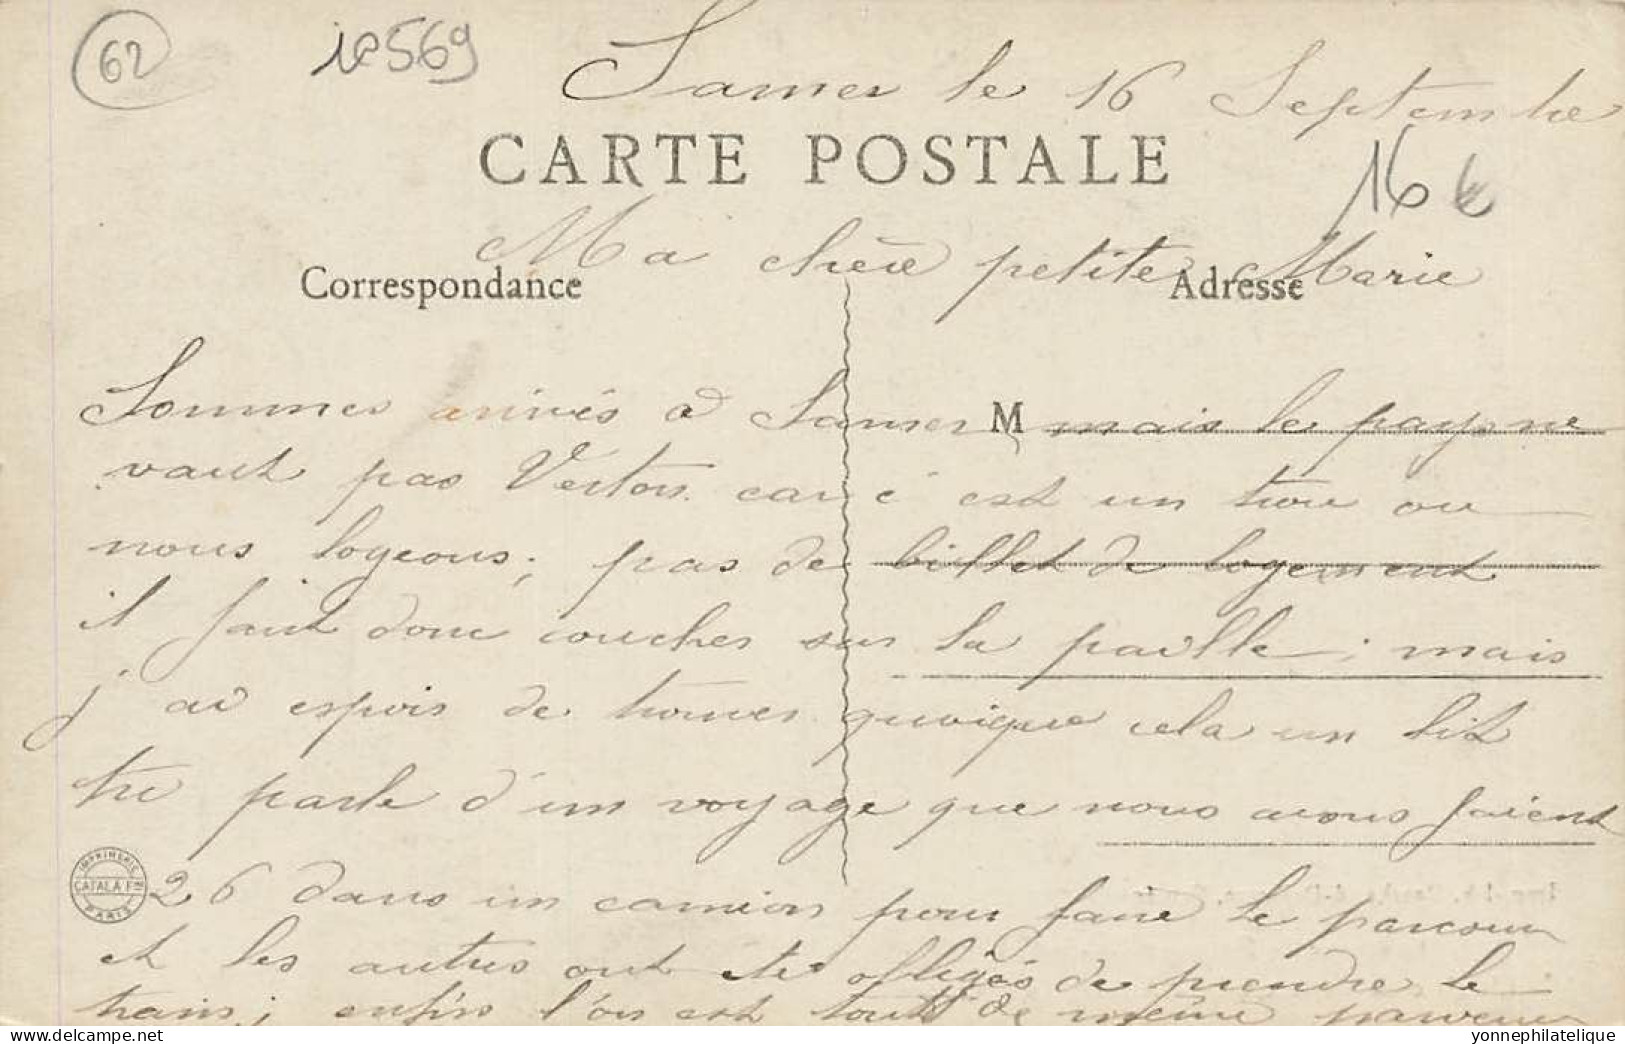 62
10569
Samer le 16 Septembre
CARTE POSTALE
16 €
Ma chère petite Marie
Correspondance
Adresse
Sommes arrivés a Samer mais le pays ne
M
vaut pas Verton car c'est un trou ou
nous logeons; pas de billet de logement
il faut donc coucher sur la paille; mais
j'ai espoir de trouver quoique cela un lit
tu parle d'un voyage que nous avons faient
26 dans un camion pour faire le parcour
IMPRIMERIE
CATALA Frs
PARIS
et les autres ont été obligés de prendre le
train; enfin l'on est tout de même parvenu
Delcampe.net
yonnephilatelique